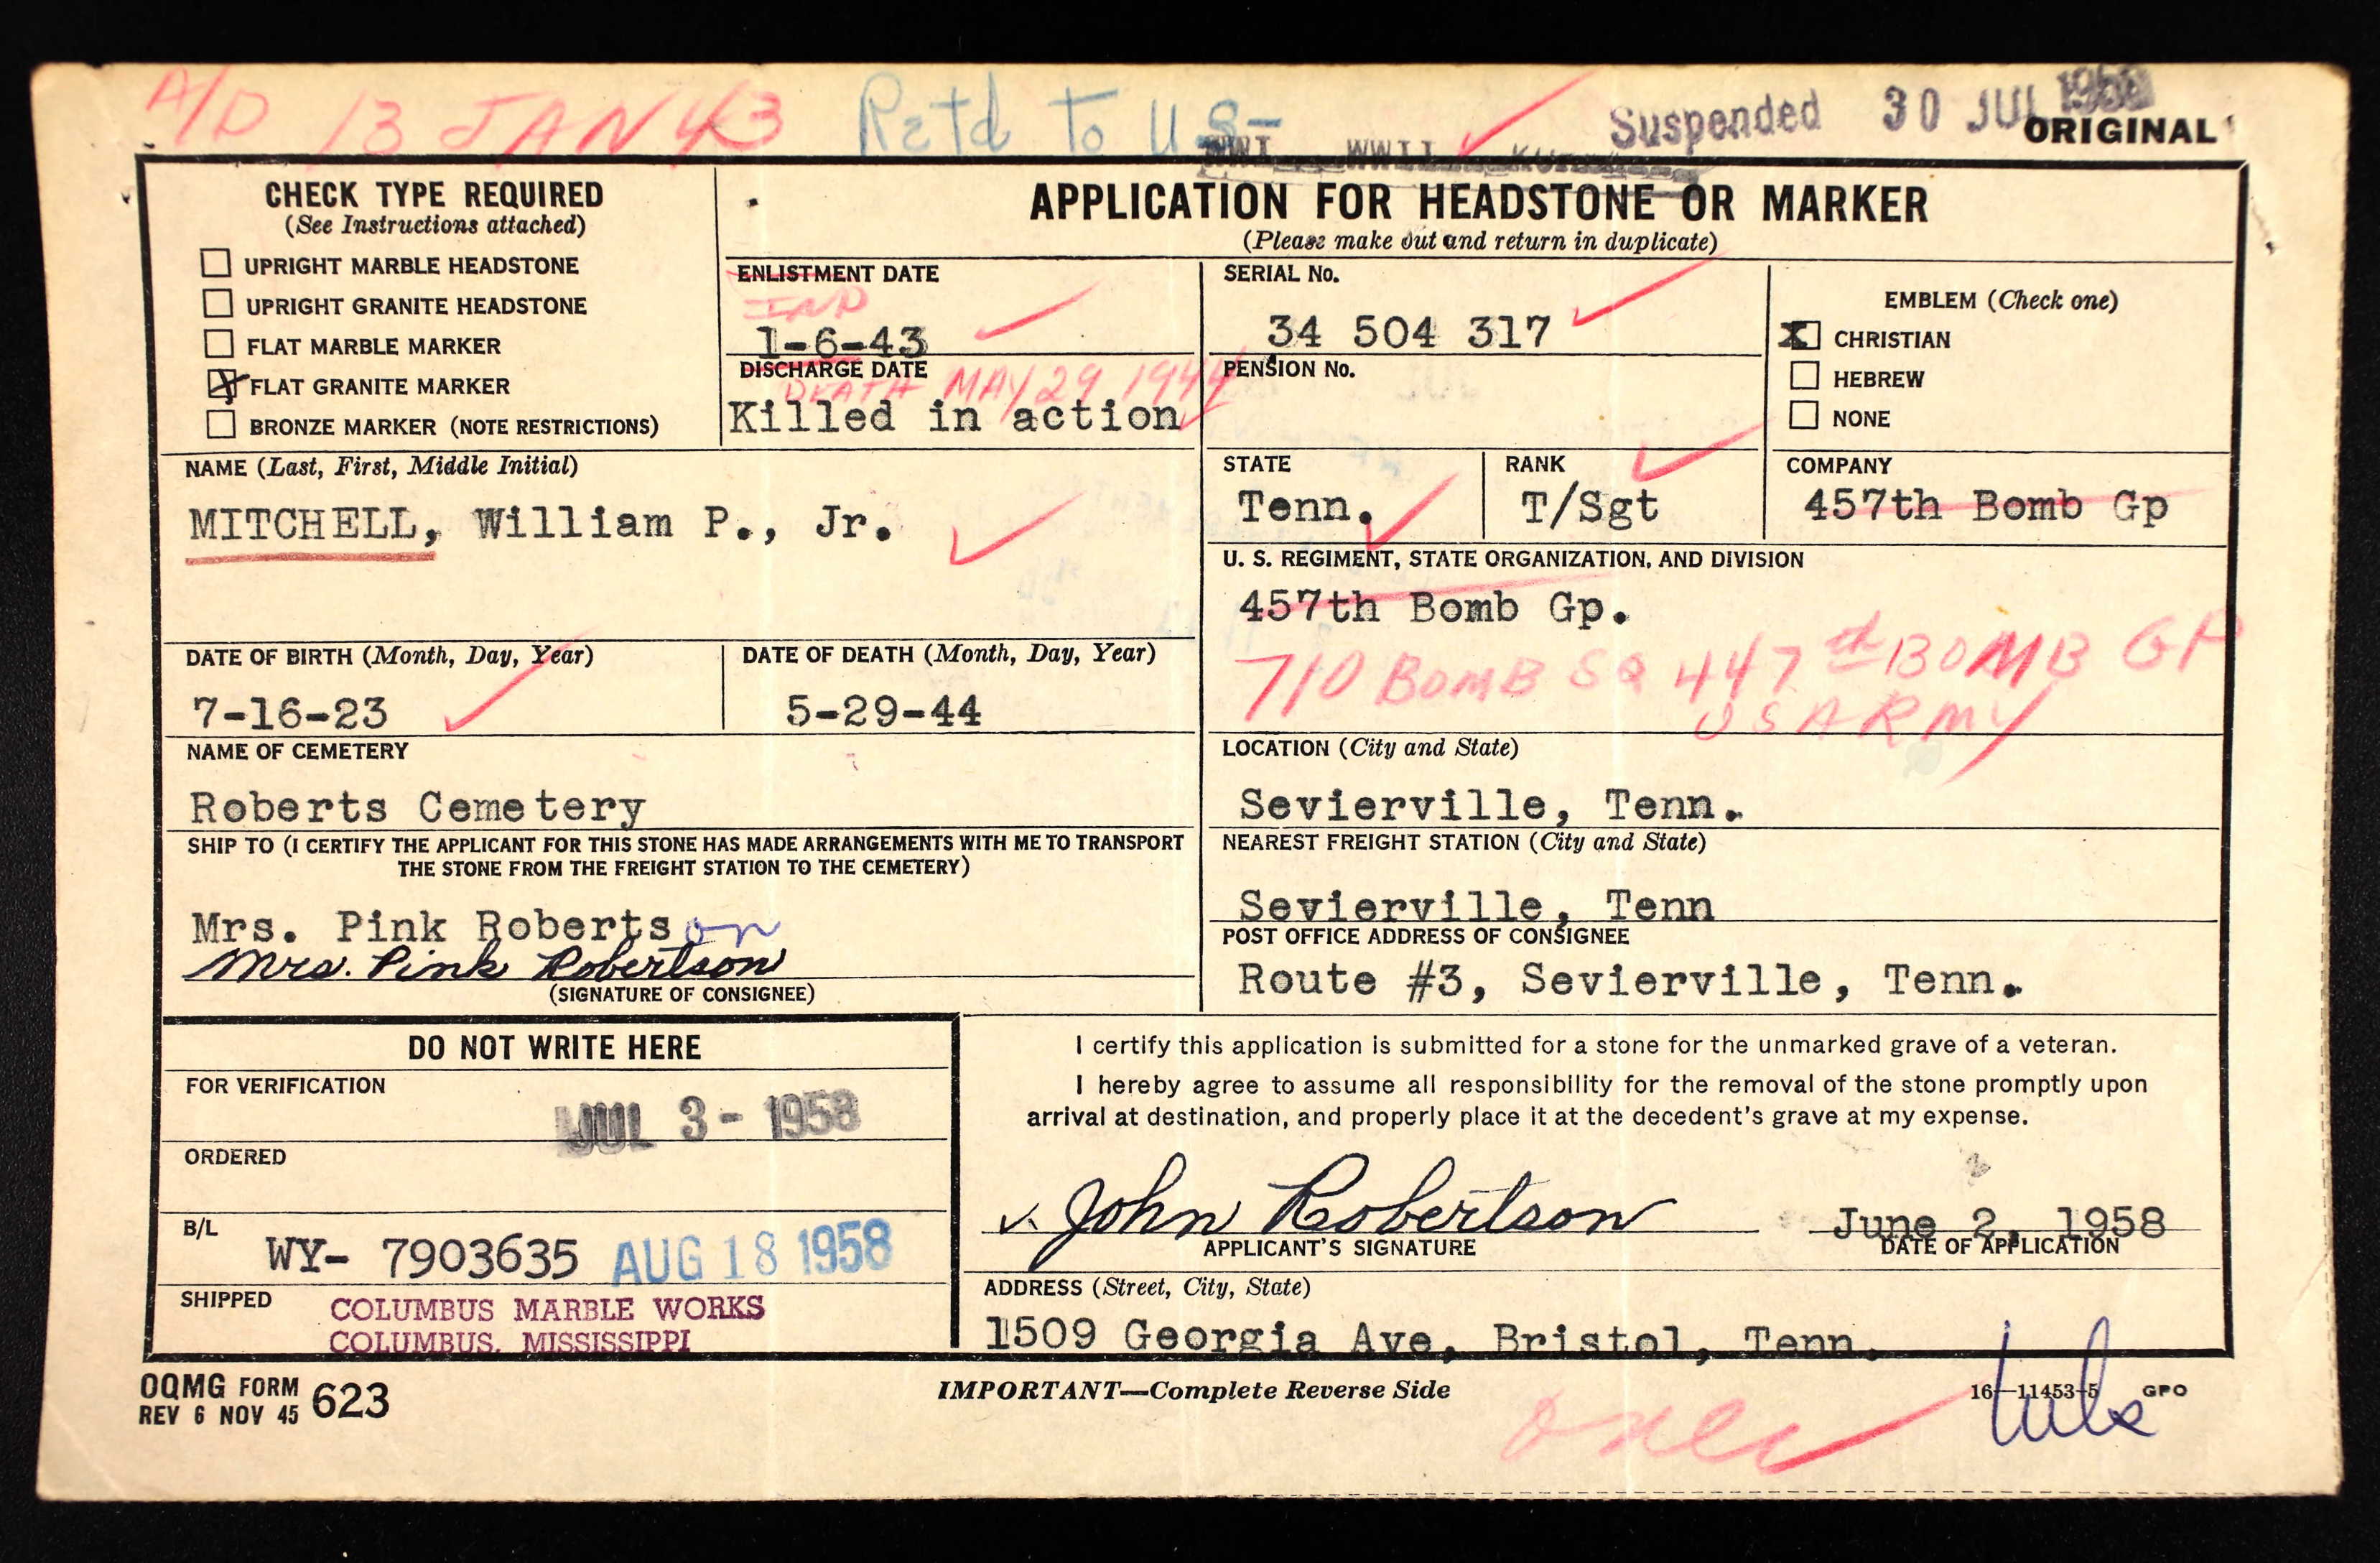 A/D 13 JAN 43 Retd to US-
Suspended 30 JUL 1958
WWI WWII
ORIGINAL
CHECK TYPE REQUIRED
(See Instructions attached)
UPRIGHT MARBLE HEADSTONE
UPRIGHT GRANITE HEADSTONE
FLAT MARBLE MARKER
X FLAT GRANITE MARKER
BRONZE MARKER (NOTE RESTRICTIONS)
APPLICATION FOR HEADSTONE OR MARKER
(Please make out and return in duplicate)
ENLISTMENT DATE
IND
1-6-43
DISCHARGE DATE
DEATH MAY 29 1944
Killed in action
SERIAL No.
34 504 317
PENSION No.
EMBLEM (Check one)
X CHRISTIAN
HEBREW
NONE
NAME (Last, First, Middle Initial)
MITCHELL, William P., Jr.
STATE
Tenn.
RANK
T/Sgt
COMPANY
457th Bomb Gp
U. S. REGIMENT, STATE ORGANIZATION, AND DIVISION
457th Bomb Gp.
710 BOMB SQ 447th BOMB GP
US ARMY
DATE OF BIRTH (Month, Day, Year)
7-16-23
DATE OF DEATH (Month, Day, Year)
5-29-44
NAME OF CEMETERY
Roberts Cemetery
LOCATION (City and State)
Sevierville, Tenn.
SHIP TO (I CERTIFY THE APPLICANT FOR THIS STONE HAS MADE ARRANGEMENTS WITH ME TO TRANSPORT
THE STONE FROM THE FREIGHT STATION TO THE CEMETERY)
Mrs. Pink Robertson
Mrs. Pink Robertson
(SIGNATURE OF CONSIGNEE)
NEAREST FREIGHT STATION (City and State)
Sevierville, Tenn
POST OFFICE ADDRESS OF CONSIGNEE
Route #3, Sevierville, Tenn.
DO NOT WRITE HERE
FOR VERIFICATION
JUL 3 - 1958
ORDERED
B/L
WY- 7903635 AUG 18 1958
SHIPPED
COLUMBUS MARBLE WORKS
COLUMBUS, MISSISSIPPI
I certify this application is submitted for a stone for the unmarked grave of a veteran.
I hereby agree to assume all responsibility for the removal of the stone promptly upon
arrival at destination, and properly place it at the decedent's grave at my expense.
John Robertson
APPLICANT'S SIGNATURE
June 2, 1958
DATE OF APPLICATION
ADDRESS (Street, City, State)
1509 Georgia Ave, Bristol, Tenn.
OQMG FORM
REV 6 NOV 45 623
IMPORTANT—Complete Reverse Side
16—11453-5 GPO